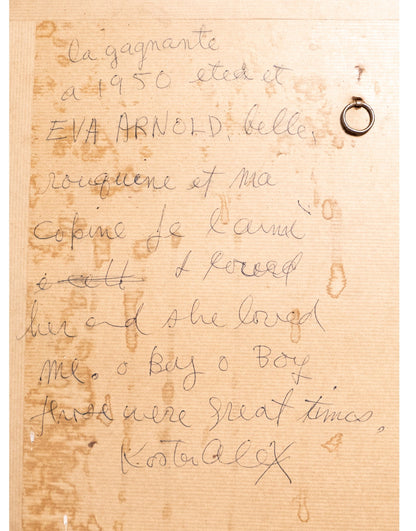 la gagnante
a 1950 etait et
EVA ARNOLD. belle,
rouquine et ma
copine je l'aimé
I loved
her and she loved
me. o Boy o Boy
those were great times.
Koster Alex